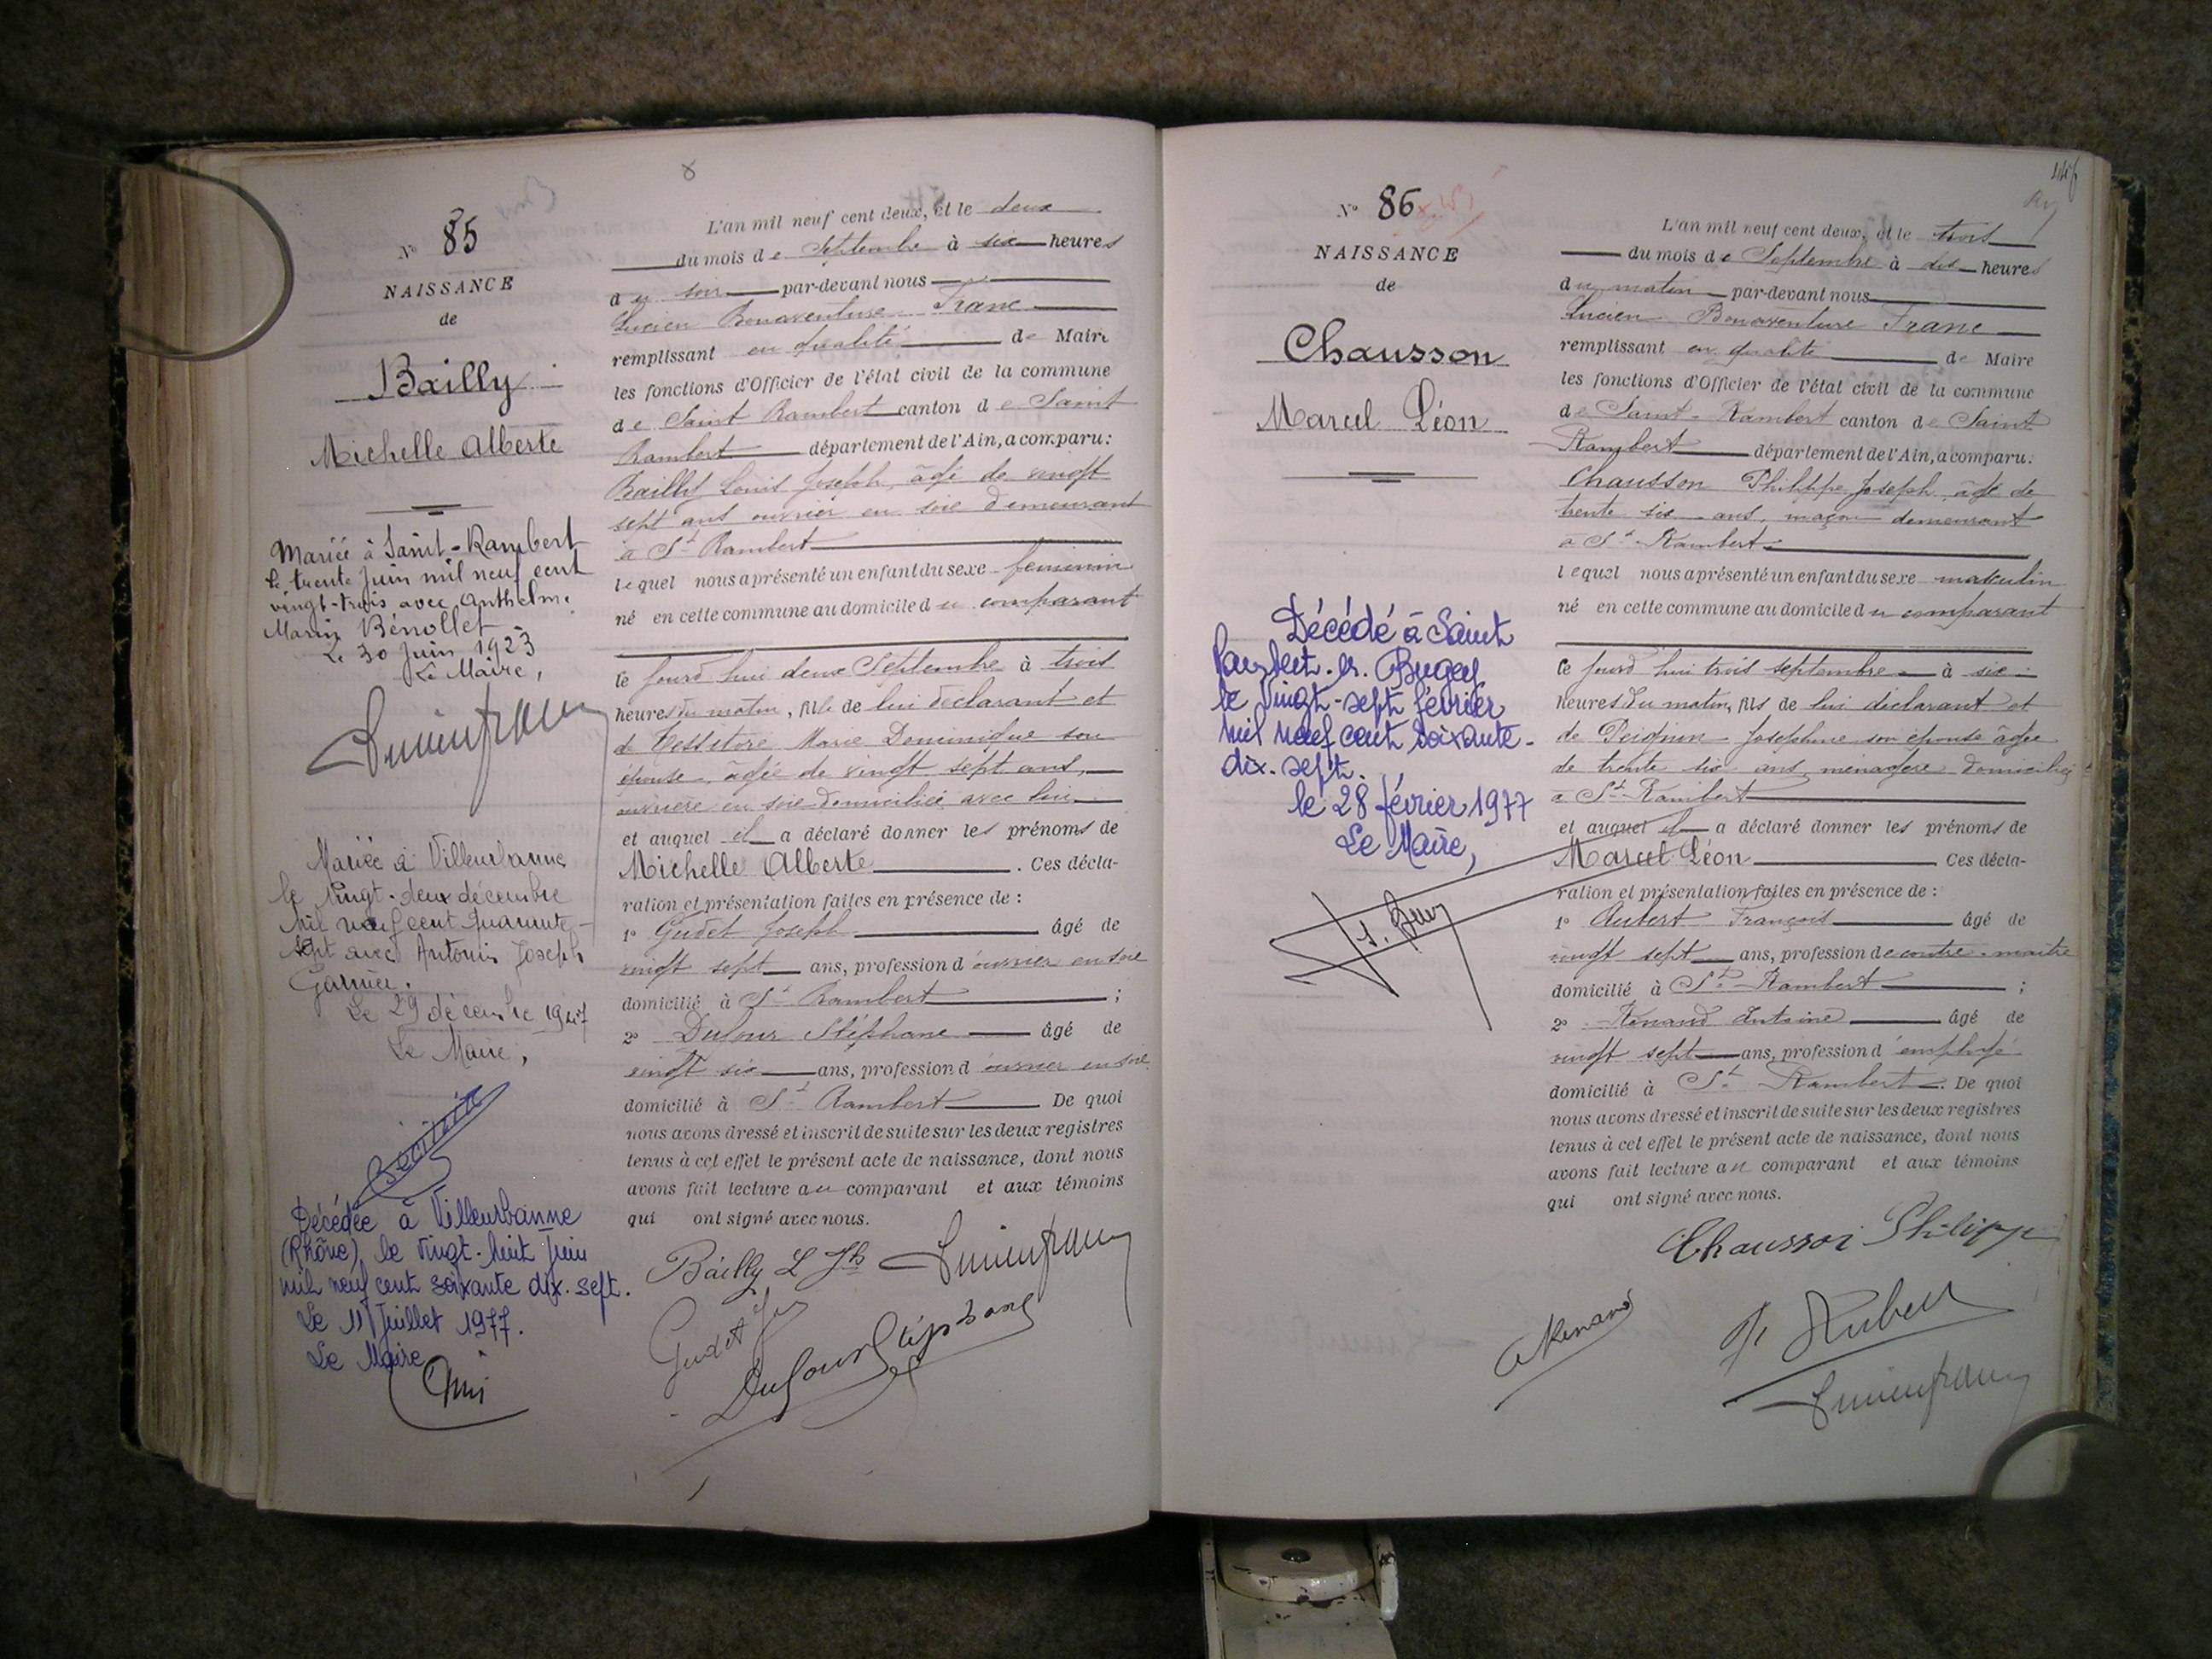 8
N° 85
NAISSANCE
de
Bailly
Michelle Alberte
Mariée à Saint-Rambert
le trente juin mil neuf cent
vingt-trois avec Anthelme
Marin Bénollet
Le 30 juin 1923
Le Maire,
Mariée à Villeurbanne
le vingt-deux décembre
mil neuf cent quarante-
sept avec Antonin Joseph
Garnier.
Le 29 décembre 1947
Le Maire,
Décédée à Villeurbanne
(Rhône) le vingt-huit juin
mil neuf cent soixante dix-sept.
Le 11 Juillet 1977.
Le Maire
L'an mil neuf cent deux, et le deux
du mois de Septembre à six heures
du soir par-devant nous
Lucien Bonaventure Franc
remplissant en qualité de Maire
les fonctions d'Officier de l'état civil de la commune
de Saint Rambert canton de Saint
Rambert département de l'Ain, a comparu:
Bailly Louis Joseph, âgé de vingt
sept ans ouvrier en soie demeurant
à St Rambert
lequel nous a présenté un enfant du sexe féminin
né en cette commune au domicile du comparant
ce jourd'hui deux Septembre à trois
heures du matin, fille de lui déclarant et
de Tessitore Marie Dominique son
épouse, âgée de vingt sept ans,
ouvrière en soie domiciliée avec lui
et auquel il a déclaré donner les prénoms de
Michelle Alberte. Ces décla-
ration et présentation faites en présence de :
1° Gudet Joseph âgé de
vingt sept ans, profession d'ouvrier en soie
domicilié à St Rambert ;
2° Dufour Stéphane âgé de
vingt six ans, profession d'ouvrier en soie
domicilié à St Rambert De quoi
nous avons dressé et inscrit de suite sur les deux registres
tenus à cet effet le présent acte de naissance, dont nous
avons fait lecture au comparant et aux témoins
qui ont signé avec nous.
Bailly L Jh
Gudet Jh
Dufour Stéphane
N° 86
NAISSANCE
de
Chausson
Marcel Léon
Décédé à Saint
Rambert-en-Bugey
le vingt-sept février
mil neuf cent soixante-
dix-sept.
le 28 février 1977
Le Maire,
L'an mil neuf cent deux, et le trois
du mois de Septembre à dix heures
du matin par-devant nous
Lucien Bonaventure Franc
remplissant en qualité de Maire
les fonctions d'Officier de l'état civil de la commune
de Saint-Rambert canton de Saint
Rambert département de l'Ain, a comparu:
Chausson Philippe Joseph âgé de
trente six ans, maçon demeurant
à St Rambert
lequel nous a présenté un enfant du sexe masculin
né en cette commune au domicile du comparant
ce jourd'hui trois septembre à six
heures du matin, fils de lui déclarant et
de Peignin Joséphine son épouse âgée
de trente six ans ménagère domiciliée
à St Rambert
et auquel il a déclaré donner les prénoms de
Marcel Léon Ces décla-
ration et présentation faites en présence de :
1° Aubert François âgé de
vingt sept ans, profession de contre-maître
domicilié à St Rambert ;
2° Renaud Antoine âgé de
vingt sept ans, profession d'employé
domicilié à St Rambert. De quoi
nous avons dressé et inscrit de suite sur les deux registres
tenus à cet effet le présent acte de naissance, dont nous
avons fait lecture au comparant et aux témoins
qui ont signé avec nous.
Chausson Philippe